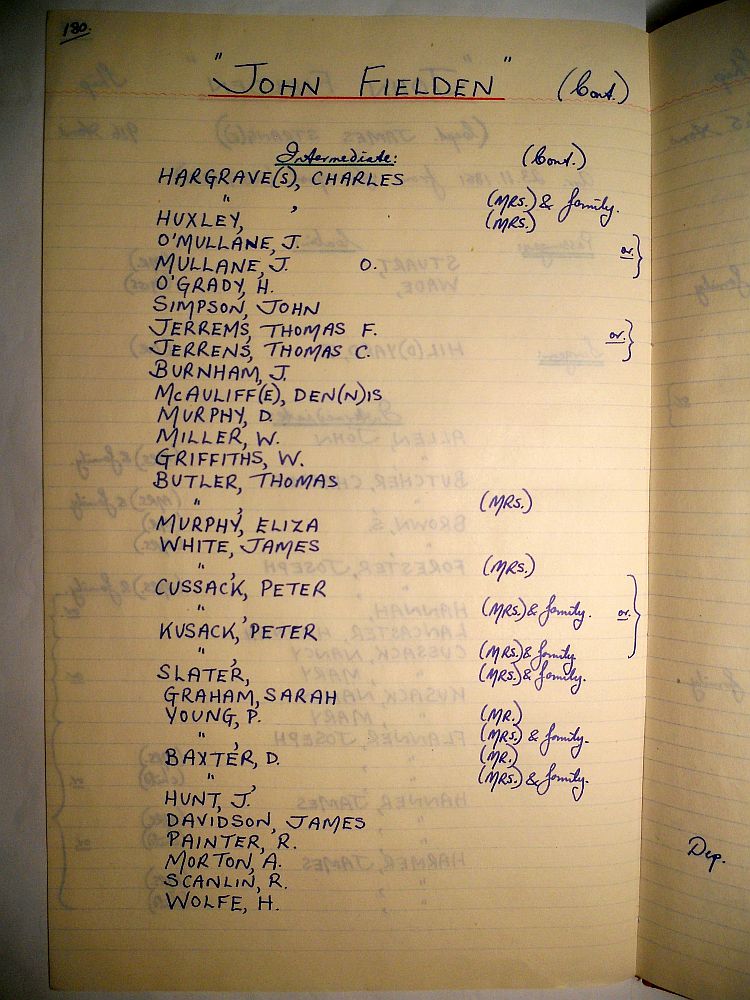 180.
"JOHN FIELDEN" (Cont.)
Intermediate: (Cont.)
HARGRAVE(S), CHARLES
" , (MRS.) & family.
HUXLEY, (MRS.)
O'MULLANE, J. or. }
MULLANE, J. O.
O'GRADY, H.
SIMPSON, JOHN
JERREMS, THOMAS F. or. }
JERRENS, THOMAS C.
BURNHAM, J.
McAULIFF(E), DEN(N)IS
MURPHY, D.
MILLER, W.
GRIFFITHS, W.
BUTLER, THOMAS
" , (MRS.)
MURPHY, ELIZA
WHITE, JAMES
" , (MRS.)
CUSSACK, PETER
" , (MRS.) & family. or. }
KUSACK, PETER
" , (MRS.) & family
SLATER, (MRS.) & family.
GRAHAM, SARAH
YOUNG, P. (MR.)
" , (MRS.) & family.
BAXTER, D. (MR.)
" , (MRS.) & family.
HUNT, J.
DAVIDSON, JAMES
PAINTER, R.
MORTON, A.
SCANLIN, R.
WOLFE, H.
Dep.